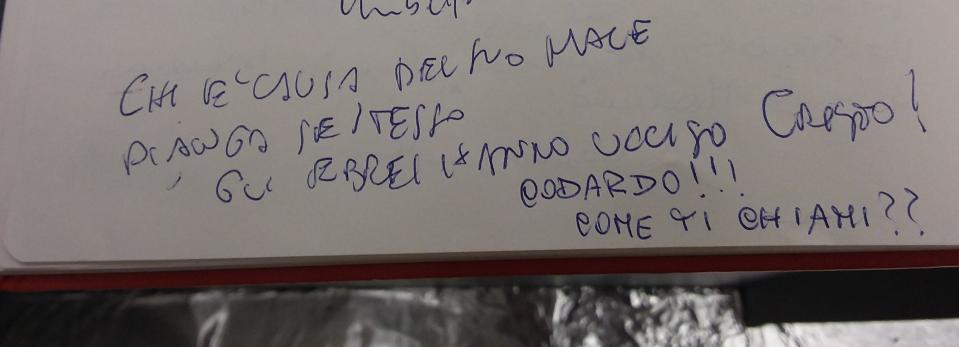 CHI E' CAUSA DEL SUO MALE
PIANGA SE STESSO
GLI EBREI HANNO UCCISO CRISTO!
CODARDO!!!
COME TI CHIAMI??